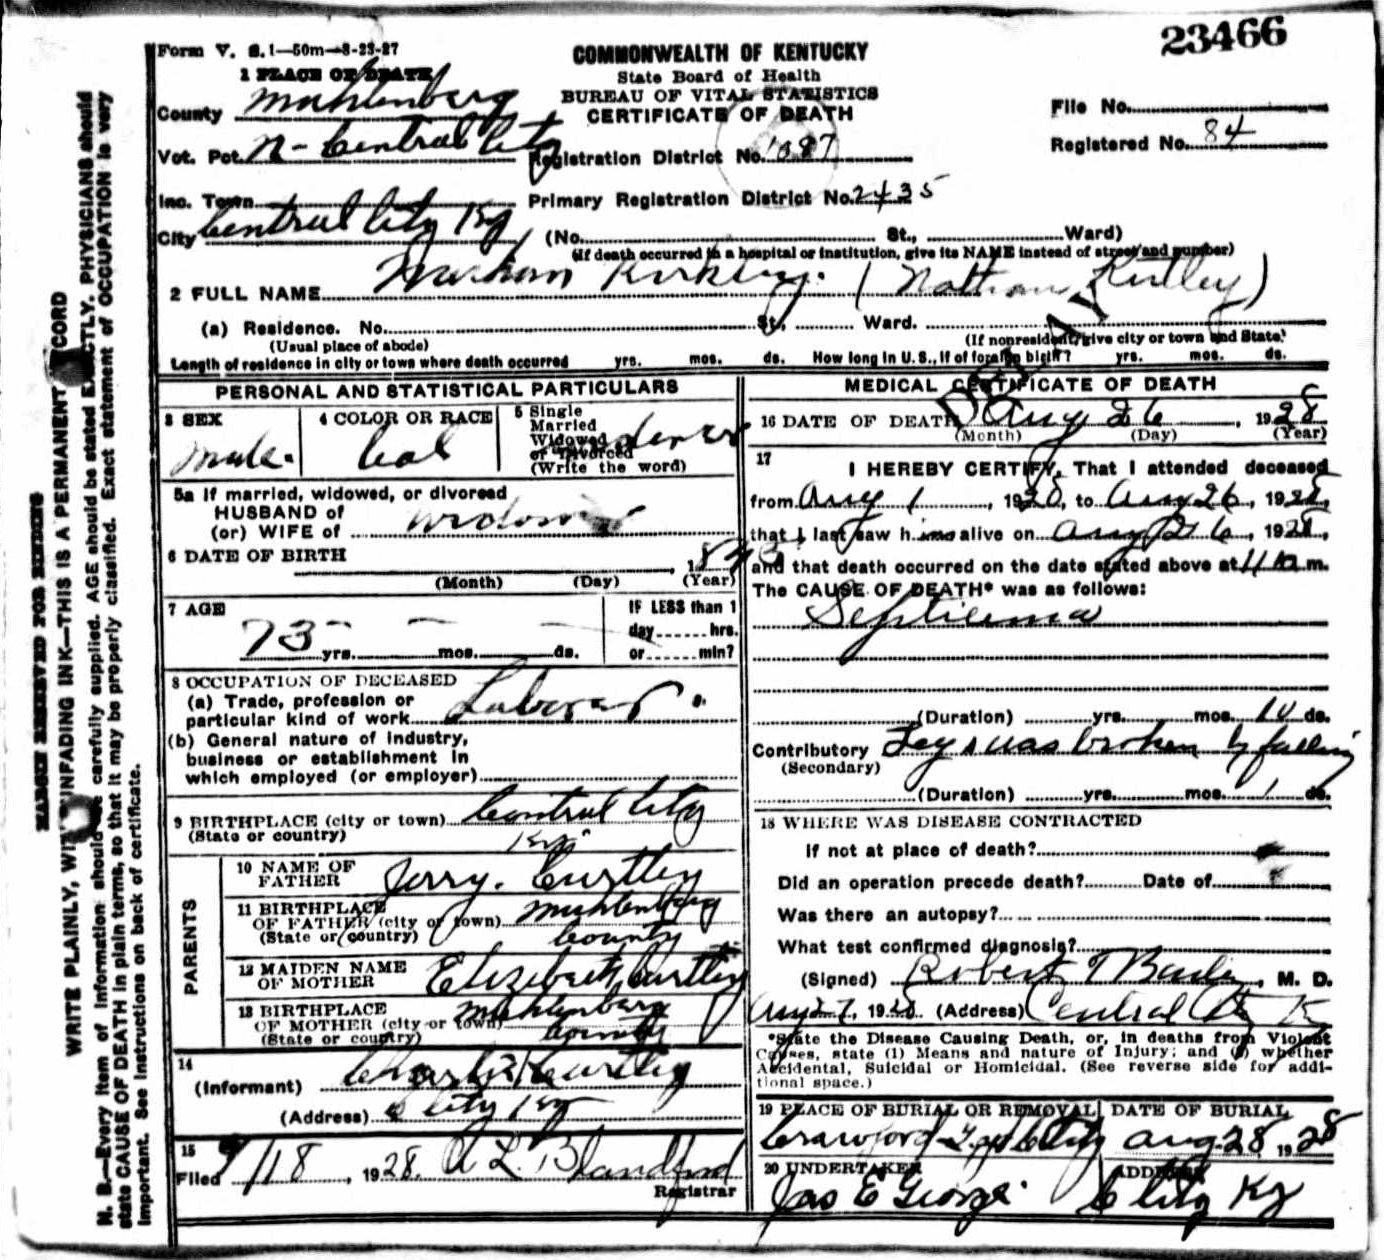 23466
Form V. S. 1—50m—8-23-27
COMMONWEALTH OF KENTUCKY
State Board of Health
BUREAU OF VITAL STATISTICS
CERTIFICATE OF DEATH
1 PLACE OF DEATH
County Muhlenberg
File No.
Vot. Pct. N- Central City
Registration District No. 1087
Registered No. 84
Inc. Town
Primary Registration District No. 2435
City Central City Ky
(No. St., Ward)
(If death occurred in a hospital or institution, give its NAME instead of street and number)
2 FULL NAME Kirkley. (Nathan Kirtley)
(a) Residence. No. St., Ward.
(Usual place of abode)
(If nonresident, give city or town and State)
Length of residence in city or town where death occurred yrs. mos. ds. How long in U. S., if of foreign birth? yrs. mos. ds.
DELAY
PERSONAL AND STATISTICAL PARTICULARS
3 SEX
male.
4 COLOR OR RACE
Col
5 Single
Married
Widowed
or Divorced
(Write the word)
5a If married, widowed, or divorced
HUSBAND of
(or) WIFE of
6 DATE OF BIRTH
(Month) (Day) (Year)
7 AGE
73 yrs. mos. ds.
IF LESS than 1
day hrs.
or min?
8 OCCUPATION OF DECEASED
(a) Trade, profession or
particular kind of work Laborer
(b) General nature of industry,
business or establishment in
which employed (or employer)
9 BIRTHPLACE (city or town) Central City
(State or country) Ky
PARENTS
10 NAME OF
FATHER Jerry. Curtley
11 BIRTHPLACE
OF FATHER (city or town) Muhlenberg
(State or country) County
12 MAIDEN NAME
OF MOTHER Elizebeth Curtley
13 BIRTHPLACE
OF MOTHER (city or town) Muhlenberg
(State or country) County
14
(Informant) Curtley
(Address) C City Ky
15
Filed 9/18, 1928. Blandford
Registrar
MEDICAL CERTIFICATE OF DEATH
16 DATE OF DEATH Aug 26, 1928
(Month) (Day) (Year)
17
I HEREBY CERTIFY, That I attended deceased
from Aug 1, 1928, to Aug 26, 1928,
that I last saw him alive on Aug 26, 1928,
and that death occurred on the date stated above at 11 m.
The CAUSE OF DEATH* was as follows:
Septicema
(Duration) yrs. mos. 10 ds.
Contributory Leg was broken by falling
(Secondary)
(Duration) yrs. mos. 1 ds.
18 WHERE WAS DISEASE CONTRACTED
If not at place of death?
Did an operation precede death? Date of
Was there an autopsy?
What test confirmed diagnosis?
(Signed) Robert T, M. D.
Aug 27, 1928 (Address) Central City K
*State the Disease Causing Death, or, in deaths from Violent
Causes, state (1) Means and nature of Injury; and (2) whether
Accidental, Suicidal or Homicidal. (See reverse side for addi-
tional space.)
19 PLACE OF BURIAL OR REMOVAL
Crawford City
DATE OF BURIAL
Aug 28, 1928
20 UNDERTAKER
Jas E George.
ADDRESS
C City Ky
MARGIN RESERVED FOR BINDING
WRITE PLAINLY, WITH UNFADING INK—THIS IS A PERMANENT RECORD
N. B.—Every item of information should be carefully supplied. AGE should be stated EXACTLY. PHYSICIANS should
state CAUSE OF DEATH in plain terms, so that it may be properly classified. Exact statement of OCCUPATION is very
important. See instructions on back of certificate.